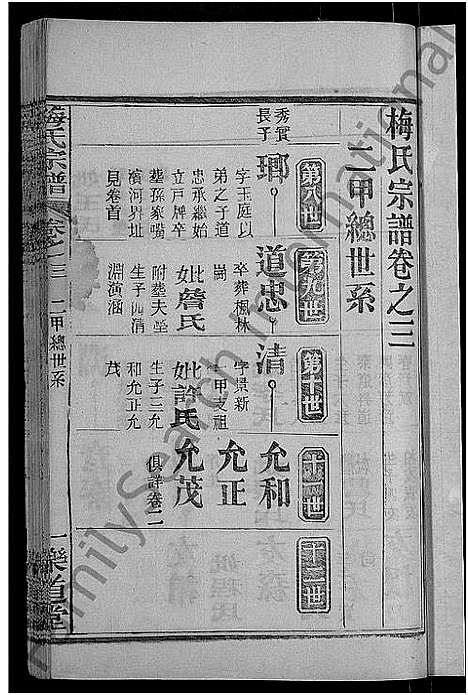 梅氏宗譜卷之三
二甲總世系
第八世
第九世
第十世
十一世
十二世
秀實
長子
瑯
字玉庭以
弟之子道
忠承繼始
立戸牌卒
葬孫家嘴
濱河界址
見卷首
道忠
卒葬楓林
妣詹氏
附葬夫塋
生子四清
淵演涵
清
字景新
二甲支祖
妣許氏
生子三允
和允正允
茂
允和
允正
允茂
俱詳卷二
梅氏宗譜
卷之三 二甲總世系
一 樂道堂
FamilySearch International